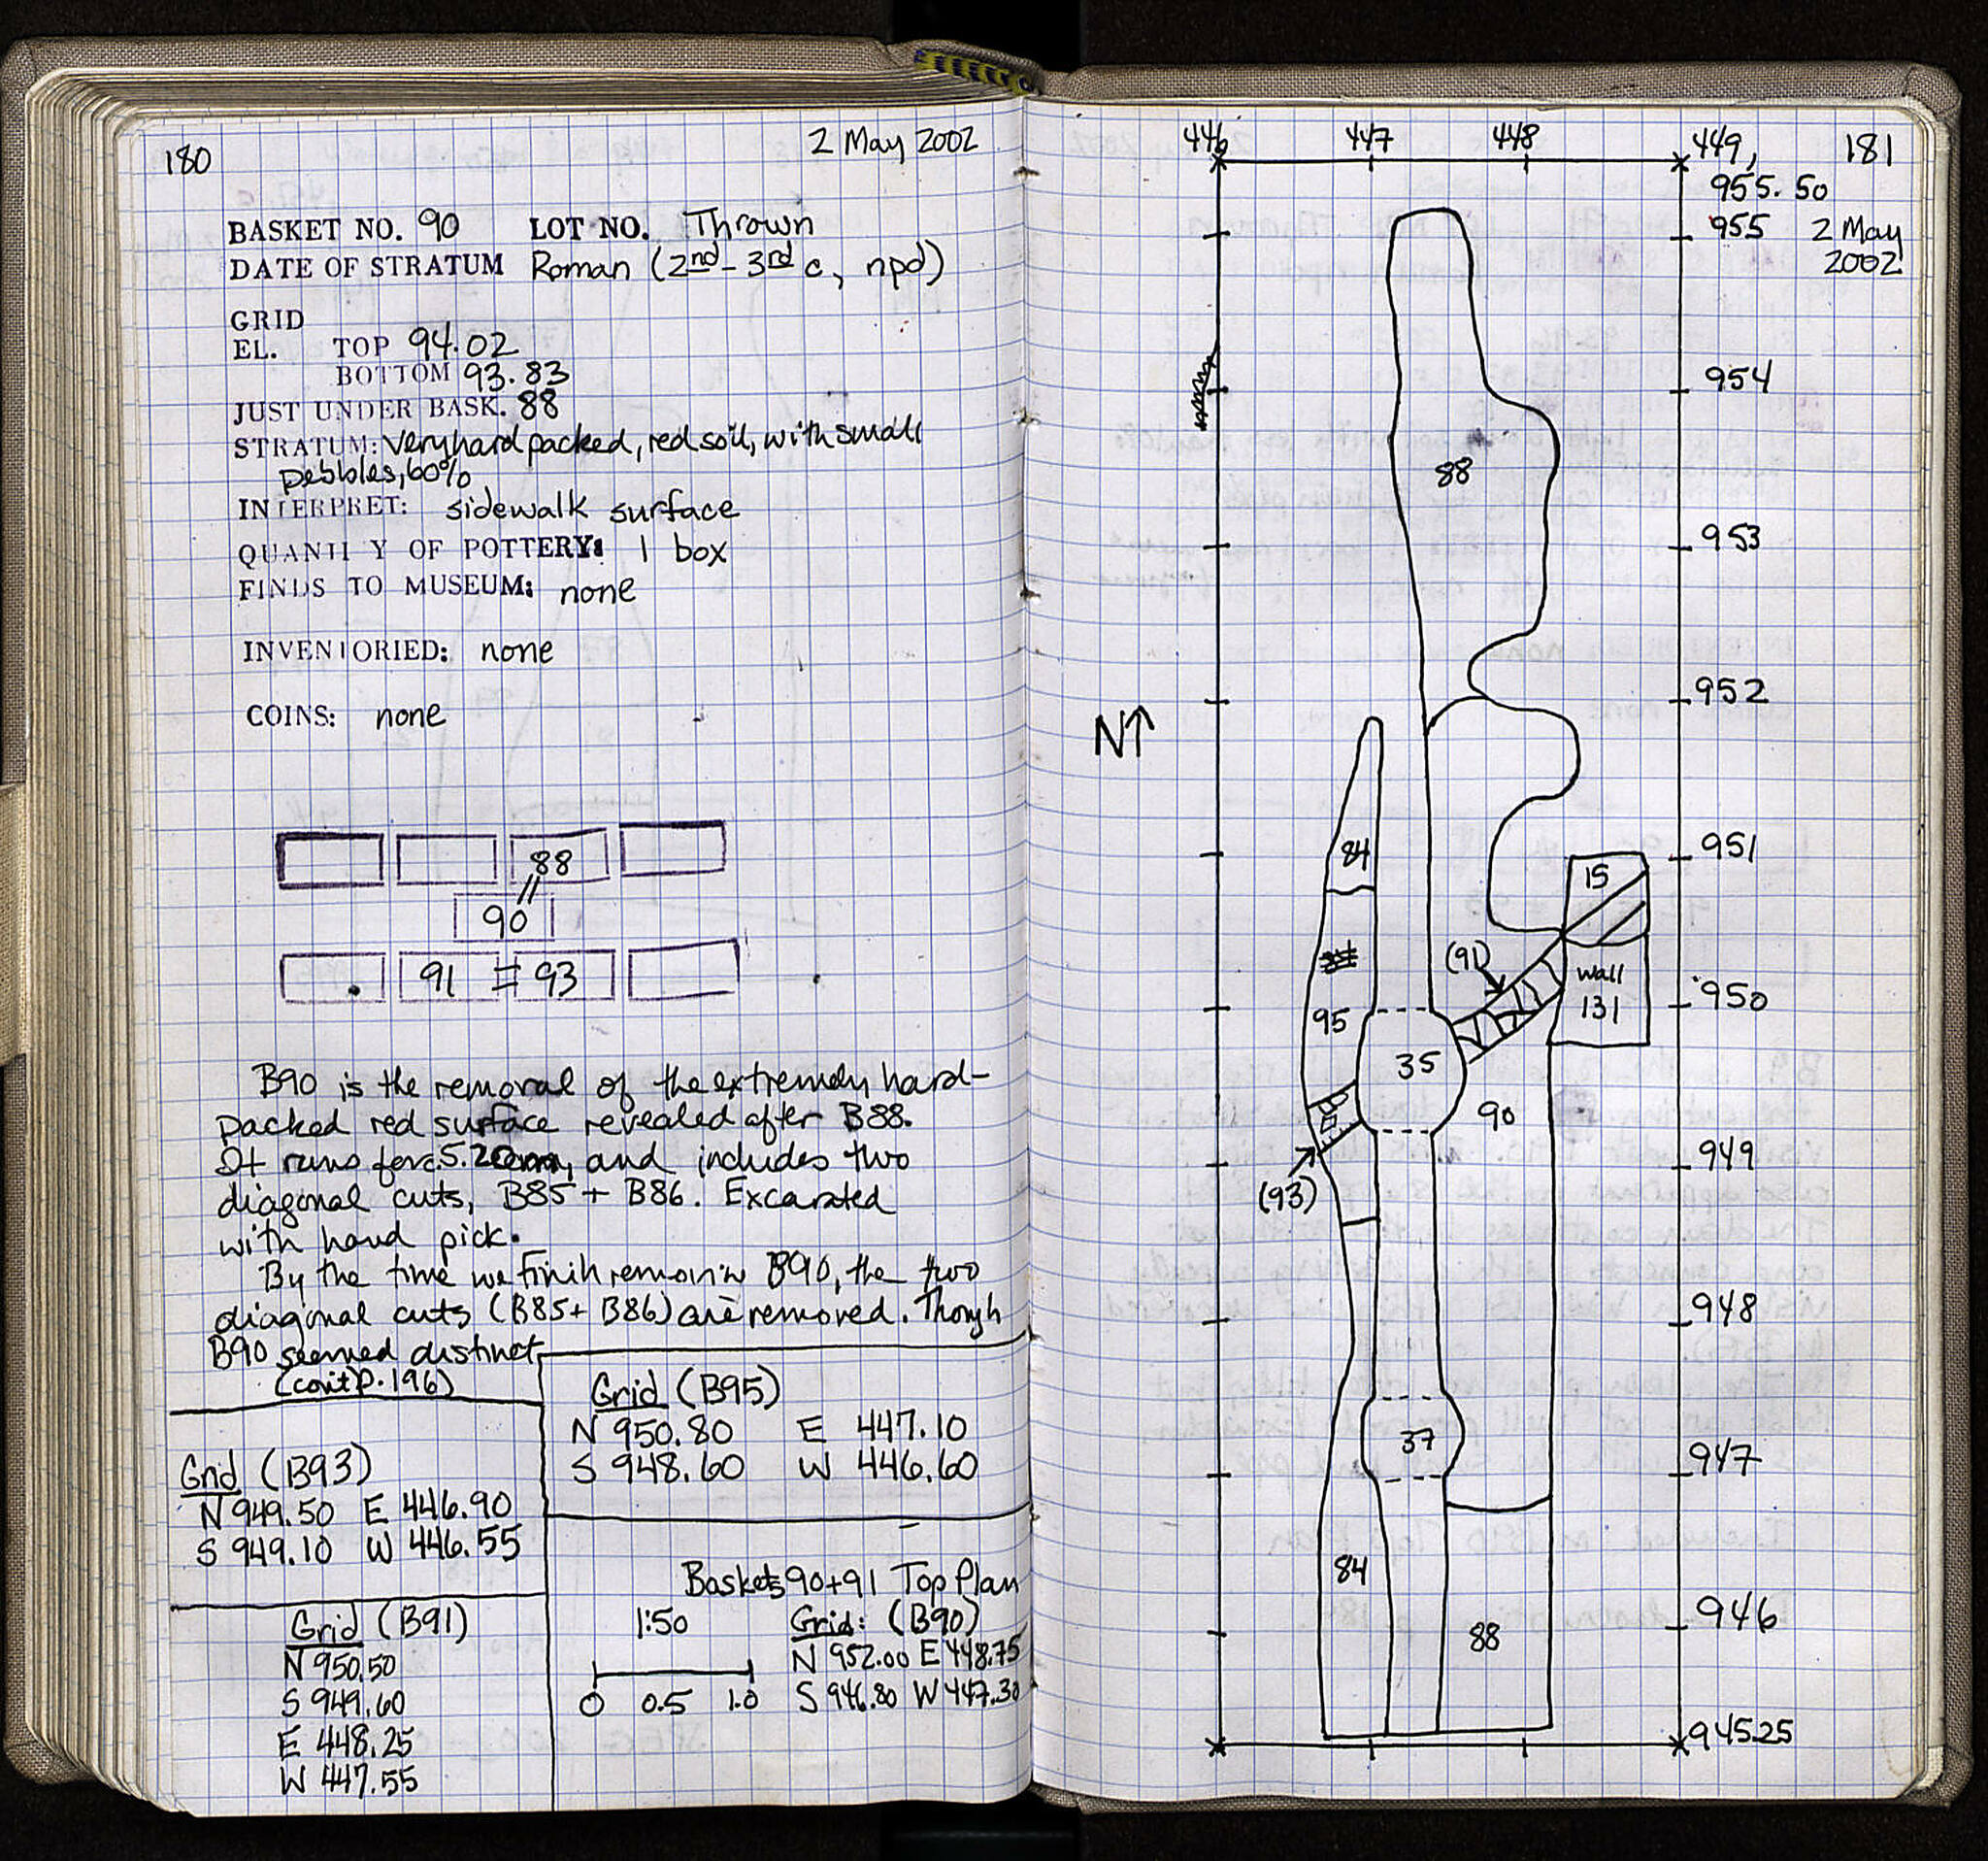 180
2 May 2002
BASKET NO. 90 LOT NO. Thrown
DATE OF STRATUM Roman (2nd - 3rd c, npd)
GRID
EL. TOP 94.02
BOTTOM 93.83
JUST UNDER BASK. 88
STRATUM: Very hard packed, red soil, with small
pebbles, 60%
INTERPRET: sidewalk surface
QUANTITY OF POTTERY: 1 box
FINDS TO MUSEUM: none
INVENTORIED: none
COINS: none
88
//
90
91 = 93
B90 is the removal of the extremely hard-
packed red surface revealed after B88.
It runs for c. 5.20m, and includes two
diagonal cuts, B85 + B86. Excavated
with hand pick.
By the time we finish removing B90, the two
diagonal cuts (B85 + B86) are removed. Though
B90 seemed distinct
(cont p. 196)
Grid (B95)
N 950.80 E 447.10
S 948.60 W 446.60
Grid (B93)
N 949.50 E 446.90
S 949.10 W 446.55
Grid (B91)
N 950.50
S 949.60
E 448.25
W 447.55
Baskets 90+91 Top Plan
1:50
0 0.5 1.0
Grid: (B90)
N 952.00 E 448.75
S 946.80 W 447.30
446 447 448 449,
955.50
181
955
2 May
2002
954
88
953
952
N↑
84
951
15
(91)
wall
131
950
95
35
90
949
(93)
948
37
947
84
946
88
945.25